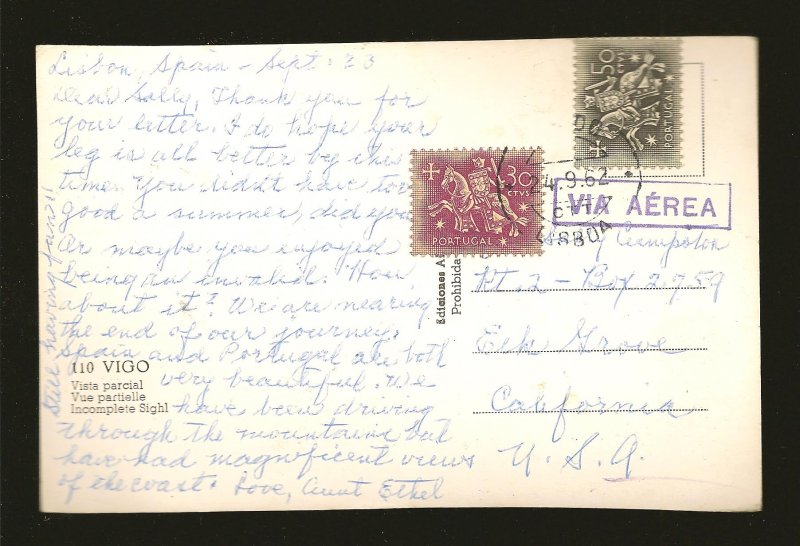 Lisbon, Spain - Sept. 23
Dear Solly, Thank you for
your letter. I do hope your
leg is all better by this
time. You didn't have too
good a summer, did you
Or maybe you enjoyed
being an invalid. How
about it? We are nearing
the end of our journey.
Spain and Portugal are both
very beautiful. We
have been driving
through the mountains but
have had magnificent views
of the coast. Love, Aunt Ethel
Still having fun!!
110 VIGO
Vista parcial
Vue partielle
Incomplete Sighl
Ediciones
Prohibida
30
CTVS
PORTUGAL
50
CTVS
PORTUGAL
24.9.62
LISBOA
VIA AÉREA
Rt. 2 - Box 2959
Elk Grove
California
U.S.A.